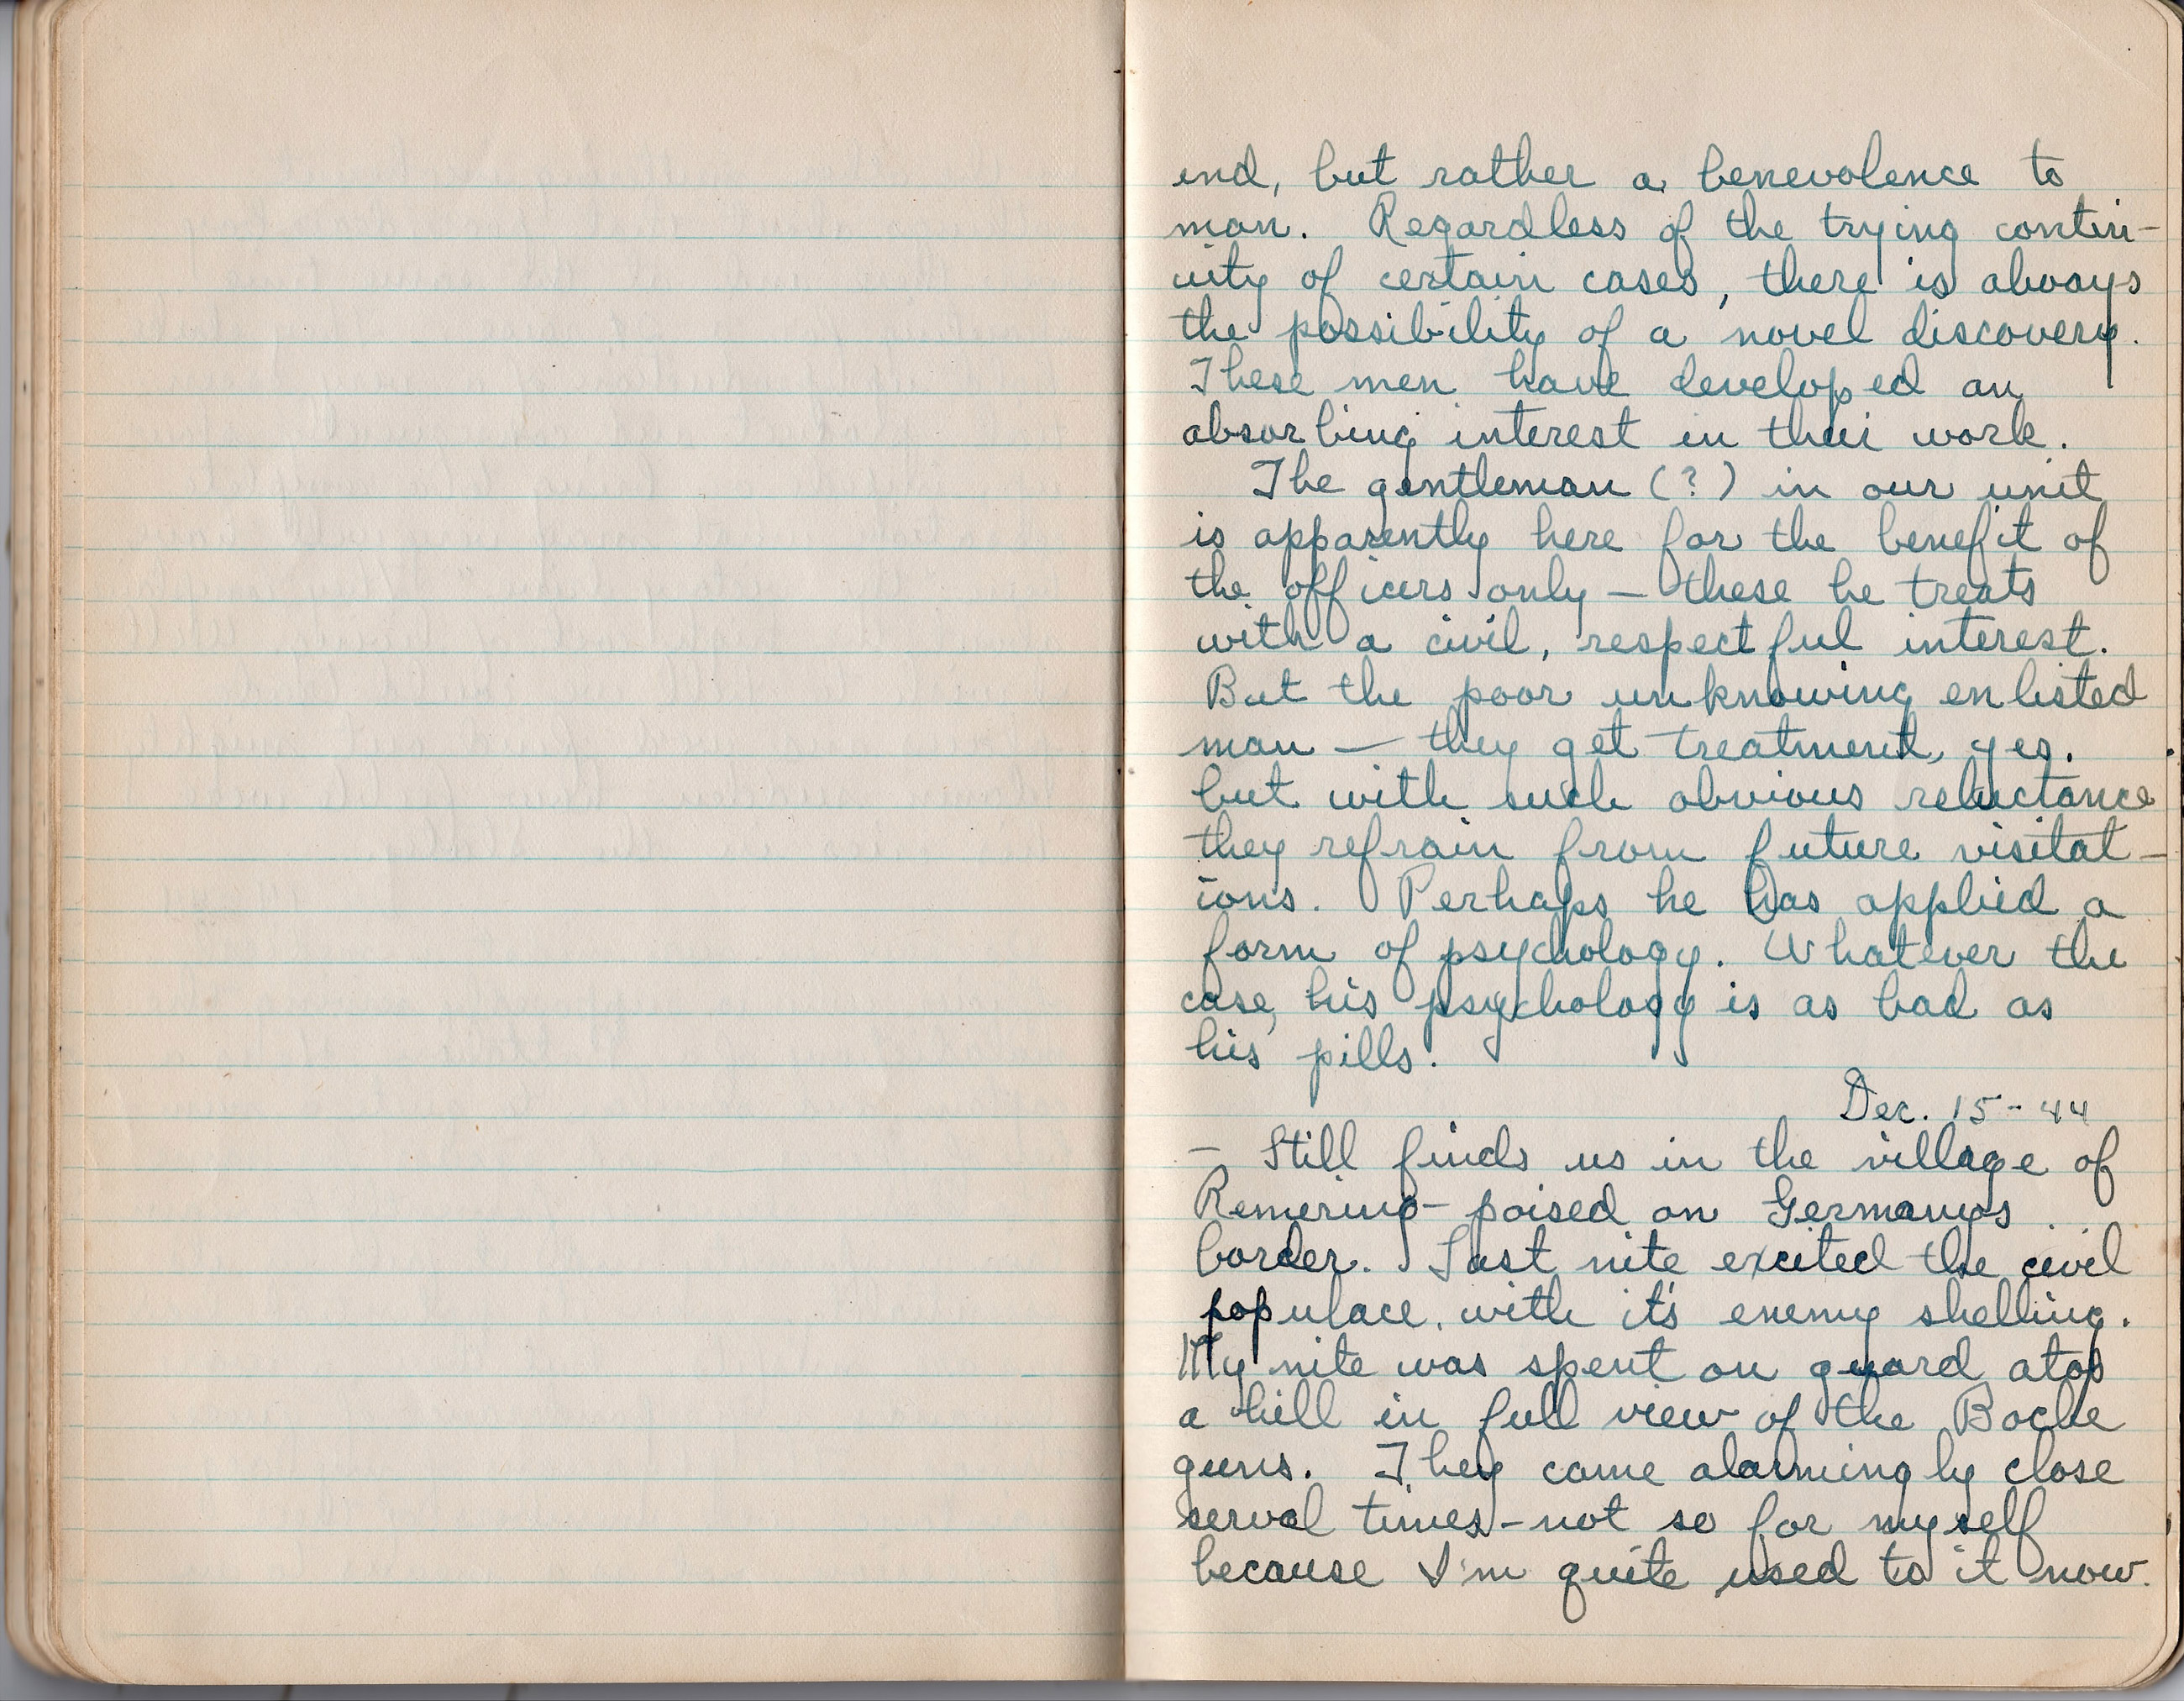 end, but rather a benevolence to
man. Regardless of the trying contin-
uity of certain cases, there is always
the possibility of a novel discovery.
These men have developed an
absorbing interest in their work.
The gentleman (?) in our unit
is apparently here for the benefit of
the officers only — these he treats
with a civil, respectful interest.
But the poor unknowing enlisted
man — they get treatment, yes.
but with such obvious reluctance
they refrain from future visitat-
ions. Perhaps he has applied a
form of psychology. Whatever the
case, his psychology is as bad as
his pills.
Dec. 15-44
— Still finds us in the village of
Remering - poised on Germanys
border. Last nite excited the civil
populace, with it's enemy shelling.
My nite was spent on guard atop
a hill in full view of the Boche
guns. They came alarmingly close
serval times - not so for myself
because I'm quite used to it now.